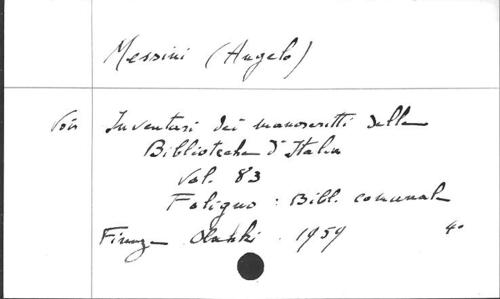 Messini (Angelo)
Voir Inventari dei manoscritti delle
Biblioteche d'Italia
Vol. 83
Foligno : Bibl. comunale
Firenze Olschki . 1959 4°